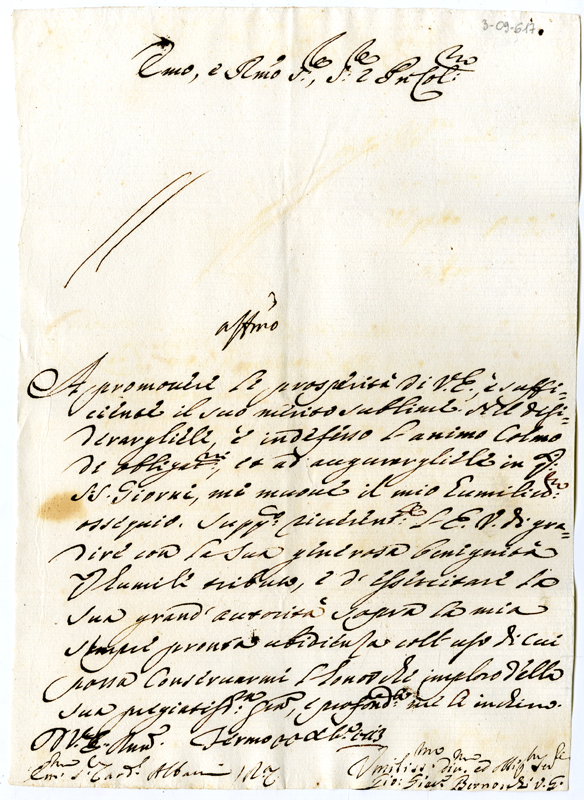 3-09-617.
Emo, e Rmo Sre, Sre e Pñ Colmo
affmo
A promouere le prosperità di V.E., è suffi-
ciente il suo merito sublime. Nel desi-
derargliele, è indefesso l'animo colmo
de obligni, et ad augurargliele in q.
SS. Giorni, me muoue il mio humiliss.mo
ossequio. Suppco riuerentte l'E.V. di gra-
dire con la sua generosa benignità
l'humile tributo, e d'essercitare la
sua grand'autorità sopra la mia
sempre pronta ubidienza coll'uso di cui
possa conseruarmi l'honor che imploro della
sua pregiatiss.ma e profond.te me le inchino.
D.V.E. Fermo
Card. Albani
Umiliss.mo diu.mo ed obligmo Serre